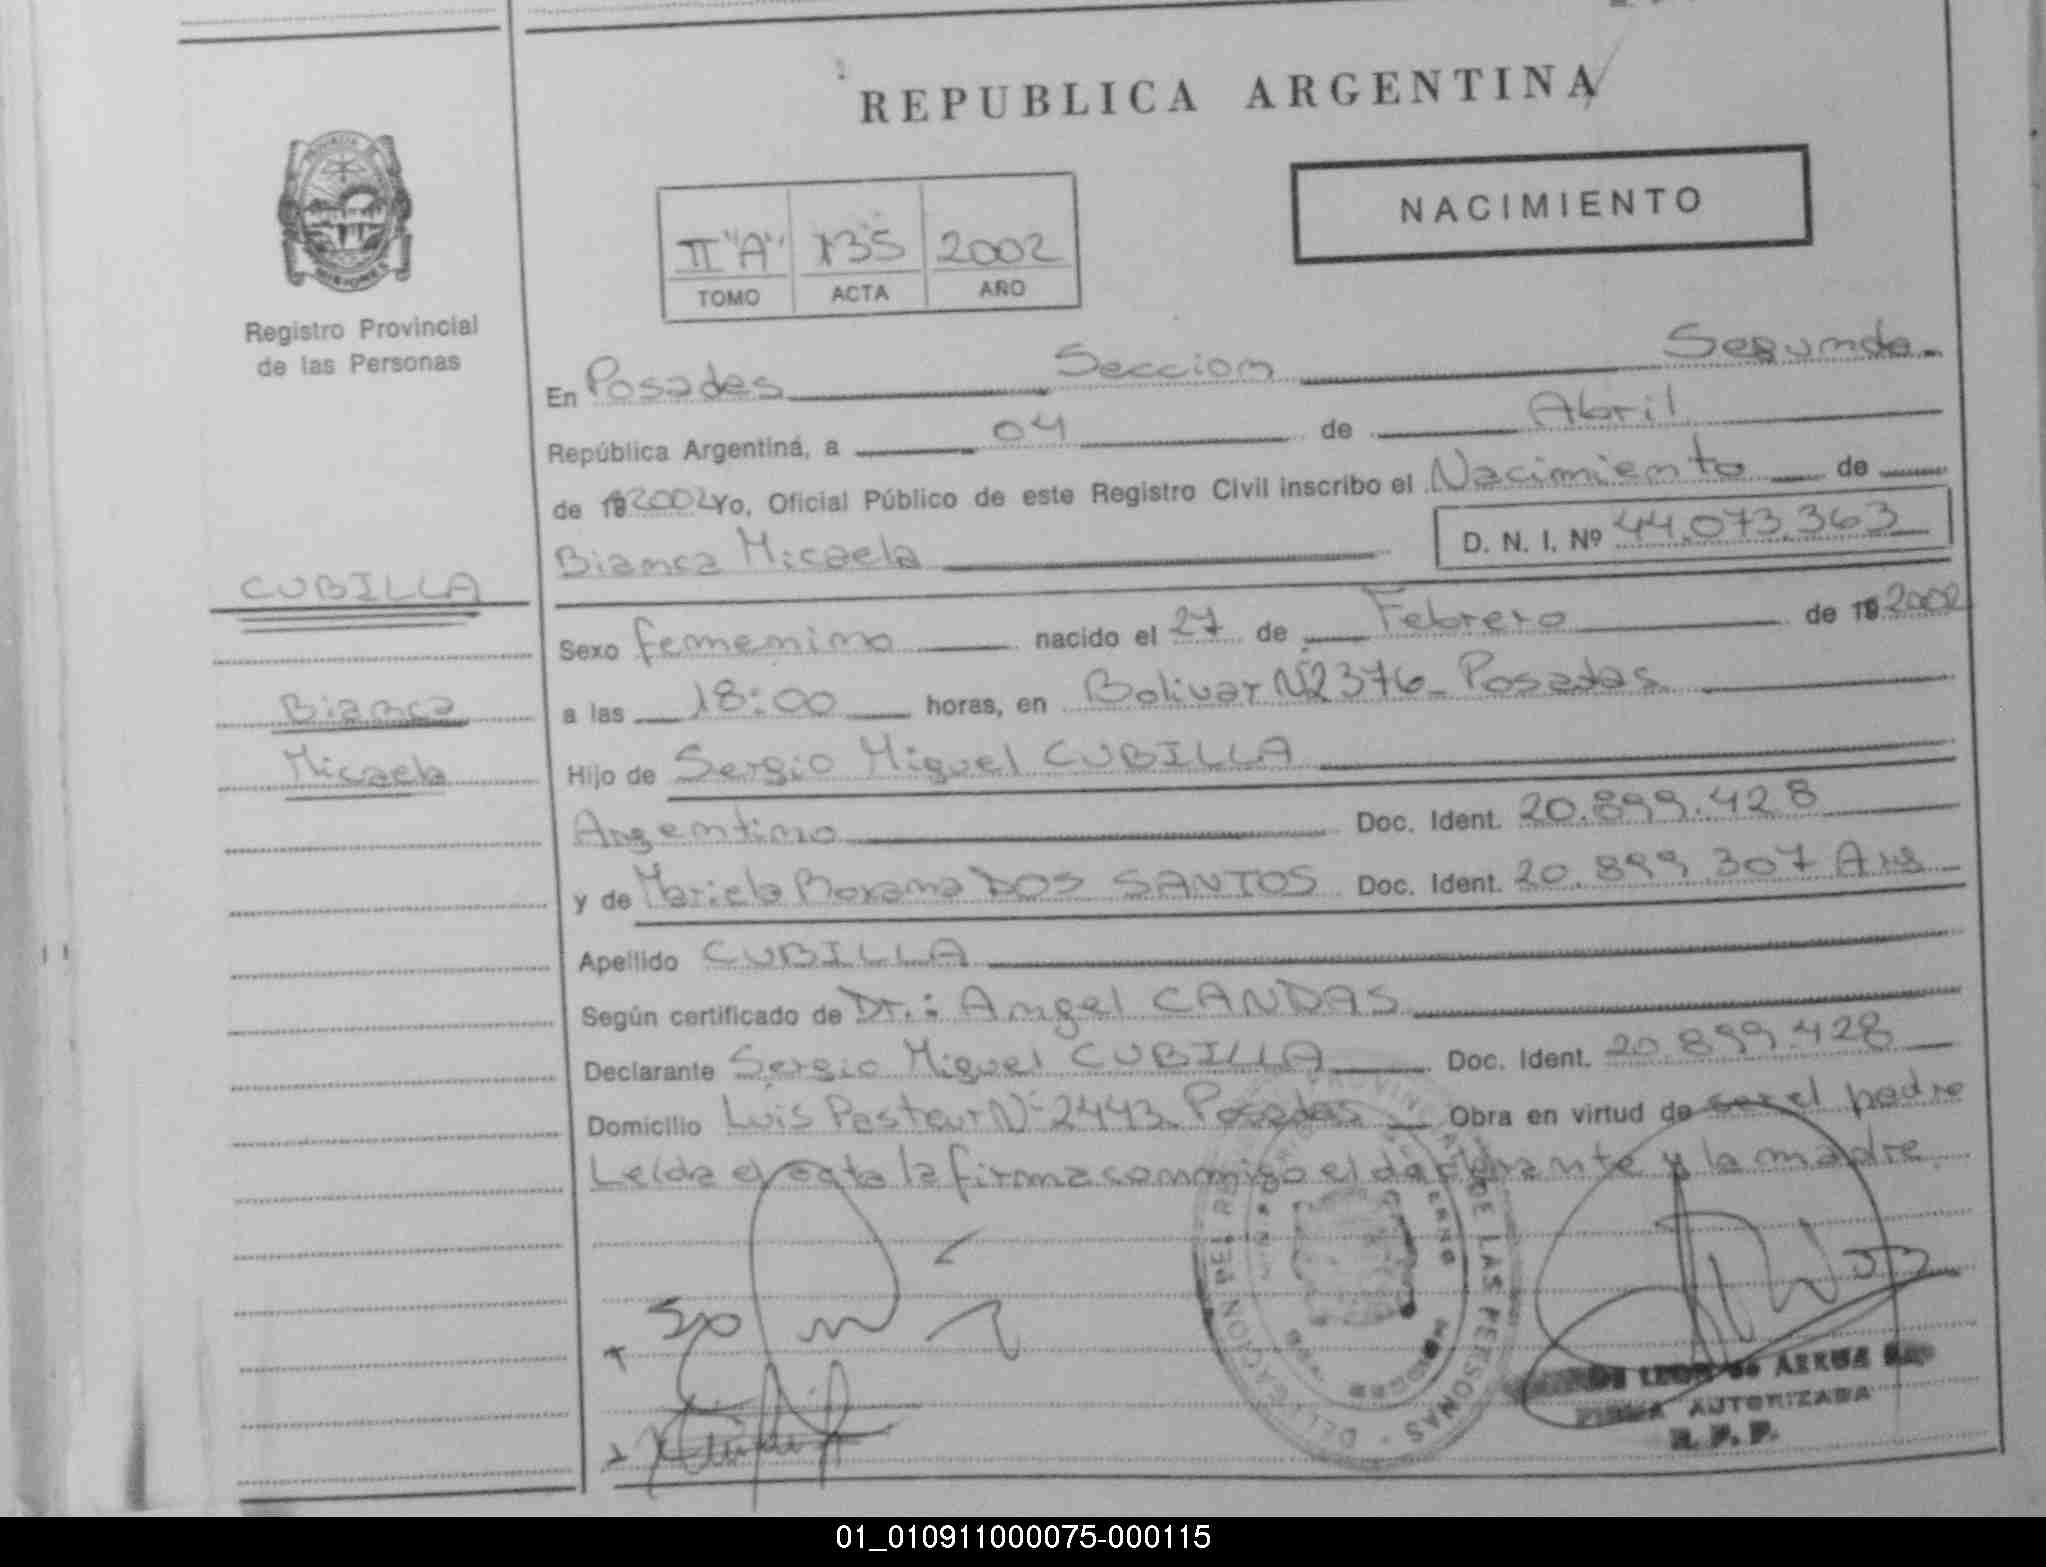 REPUBLICA ARGENTINA
NACIMIENTO
II "A" 135 2002
TOMO ACTA AÑO
Registro Provincial
de las Personas
En Posadas Seccion Segunda
República Argentina, a 04 de Abril
de 19 2002 Yo, Oficial Público de este Registro Civil inscribo el Nacimiento de
Bianca Micaela D. N. I. Nº 44.073.363
CUBILLA
Bianca
Micaela
Sexo femenino nacido el 27 de Febrero de 19 2002
a las 18:00 horas, en Bolivar Nº 2376 - Posadas
Hijo de Sergio Miguel CUBILLA
Argentino Doc. Ident. 20.899.428
y de Mariela Roxana DOS SANTOS Doc. Ident. 20.899.307 Arg
Apellido CUBILLA
Según certificado de Dr.: Angel CANDAS
Declarante Sergio Miguel CUBILLA Doc. Ident. 20.899.428
Domicilio Luis Pasteur Nº 2443 - Posadas Obra en virtud de ser el padre
Leida el acta la firma conmigo el declarante y la madre.
DE LAS PERSONAS - DELEGACION
FIRMA AUTORIZADA
R. P. P.
01_010911000075-000115